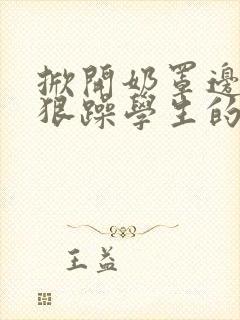 掀開奶罩邊
狠躁學生的
王益